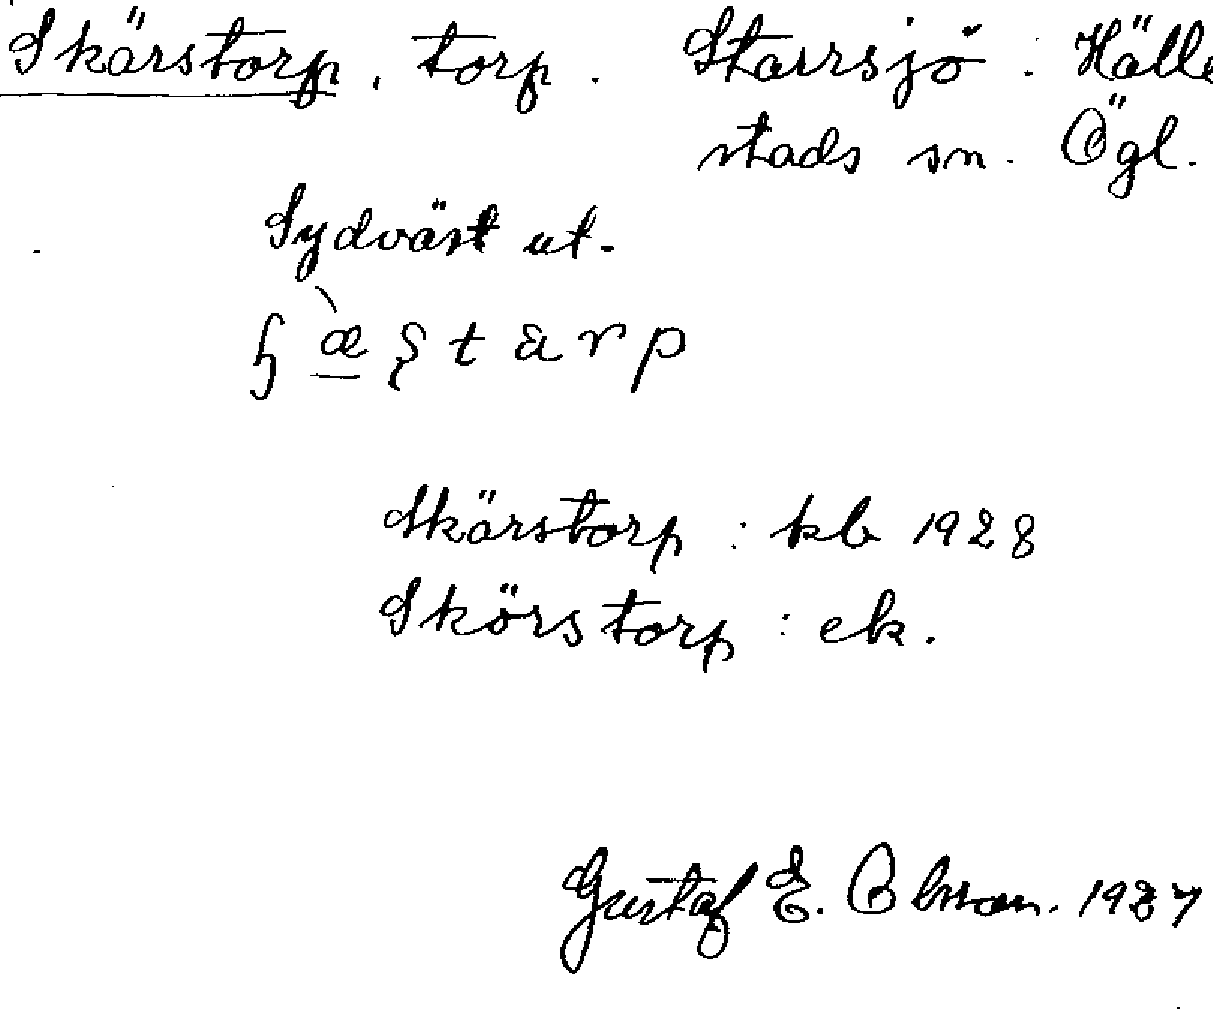 Skärstorp, torp. Starrsjö : Hälle
stads sn. Ögl.
Sydväst ut.
Skärstorp : kb 1928
Skörstorp : ek.
Gustaf E. Olsson. 1937